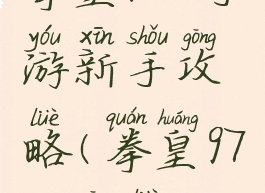 yóu xīn shǒu gōng
游新手攻
lüè quán huáng
略(拳皇97